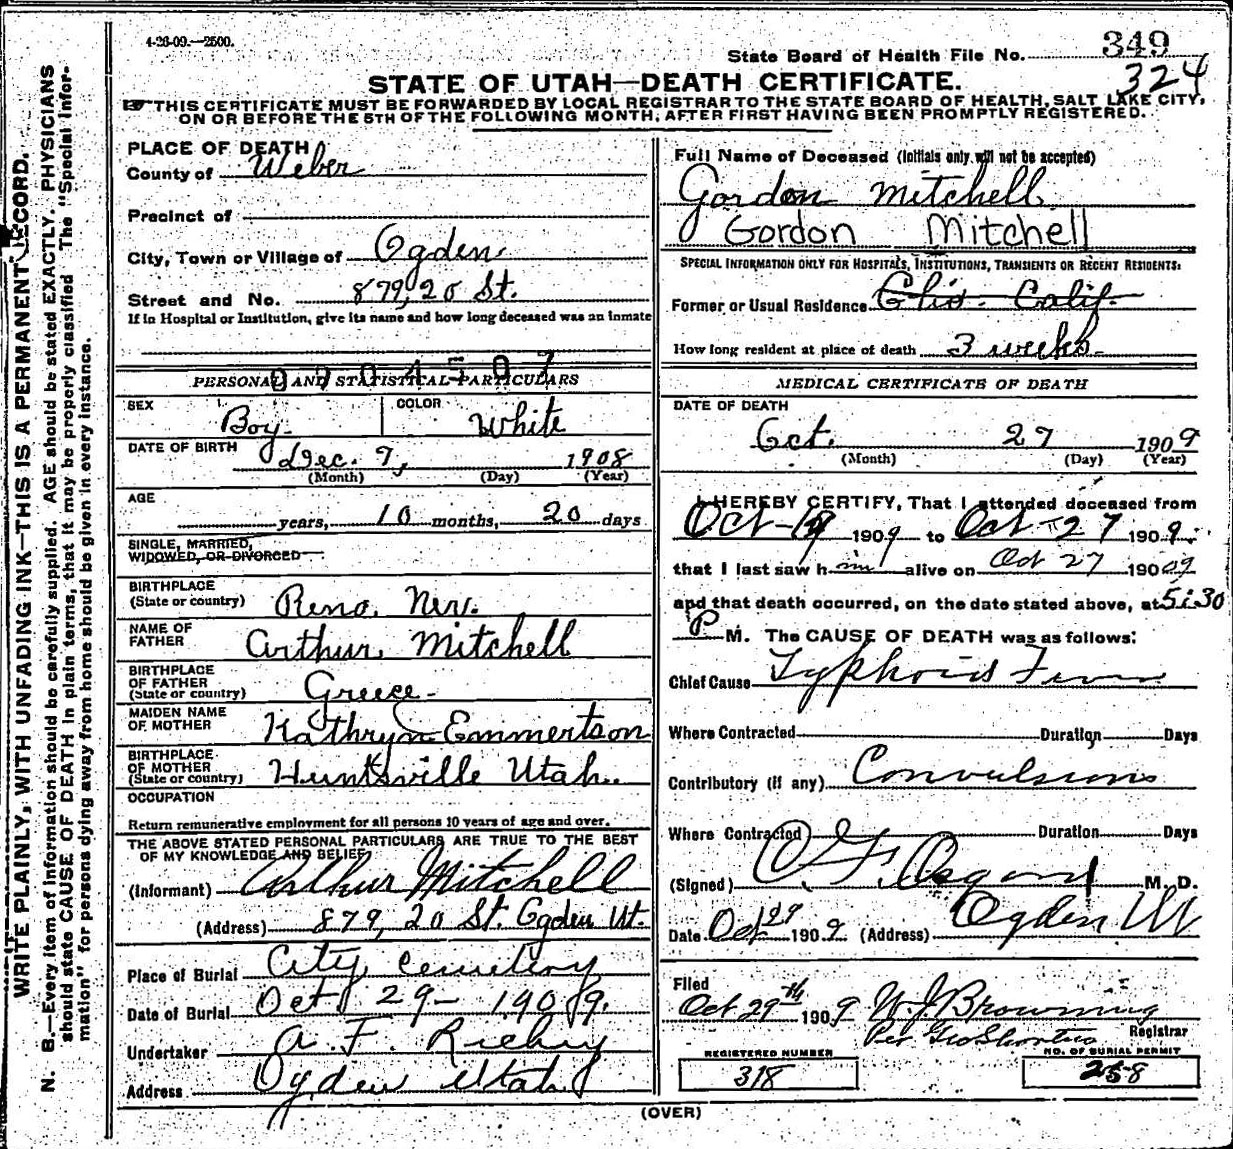 4-26-09.—2500.
State Board of Health File No. 349
324
STATE OF UTAH—DEATH CERTIFICATE.
THIS CERTIFICATE MUST BE FORWARDED BY LOCAL REGISTRAR TO THE STATE BOARD OF HEALTH, SALT LAKE CITY,
ON OR BEFORE THE 5TH OF THE FOLLOWING MONTH, AFTER FIRST HAVING BEEN PROMPTLY REGISTERED.
WRITE PLAINLY, WITH UNFADING INK—THIS IS A PERMANENT RECORD.
N. B.—Every item of information should be carefully supplied. AGE should be stated EXACTLY. PHYSICIANS
should state CAUSE OF DEATH in plain terms, that it may be properly classified The "Special Infor-
mation" for persons dying away from home should be given in every instance.
PLACE OF DEATH
County of Weber
Precinct of
City, Town or Village of Ogden
Street and No. 879, 20 St.
If in Hospital or Institution, give its name and how long deceased was an inmate
PERSONAL AND STATISTICAL PARTICULARS
SEX Boy COLOR White
DATE OF BIRTH Dec. 7, 1908
(Month) (Day) (Year)
AGE
years, 10 months, 20 days
SINGLE, MARRIED,
WIDOWED, OR DIVORCED
BIRTHPLACE
(State or country) Reno. Nev.
NAME OF
FATHER Arthur Mitchell
BIRTHPLACE
OF FATHER
(State or country) Greece
MAIDEN NAME
OF MOTHER Kathryn Emmertson
BIRTHPLACE
OF MOTHER
(State or country) Huntsville Utah.
OCCUPATION
Return remunerative employment for all persons 10 years of age and over.
THE ABOVE STATED PERSONAL PARTICULARS ARE TRUE TO THE BEST
OF MY KNOWLEDGE AND BELIEF
(Informant) Arthur Mitchell
(Address) 879, 20 St. Ogden Ut.
Place of Burial City Cemetery
Date of Burial Oct 29 - 1909.
Undertaker A. F.
Address Ogden Utah
Full Name of Deceased (Initials only will not be accepted)
Gordon Mitchell
Gordon Mitchell
SPECIAL INFORMATION ONLY FOR HOSPITALS, INSTITUTIONS, TRANSIENTS OR RECENT RESIDENTS:
Former or Usual Residence Calif.
How long resident at place of death 3 weeks
MEDICAL CERTIFICATE OF DEATH
DATE OF DEATH
Oct. 27 1909
(Month) (Day) (Year)
I HEREBY CERTIFY, That I attended deceased from
Oct 1909 to Oct 27 1909.
that I last saw him alive on Oct 27 1909
and that death occurred, on the date stated above, at 5:30
P M. The CAUSE OF DEATH was as follows:
Chief Cause Typhoid Fever
Where Contracted Duration Days
Contributory (if any) Convulsions
Where Contracted Duration Days
(Signed) M. D.
Date Oct 1909 (Address) Ogden Ut
Filed
Oct 29th 1909 W. J. Browning
Per Registrar
REGISTERED NUMBER
318
NO. OF BURIAL PERMIT
258
(OVER)